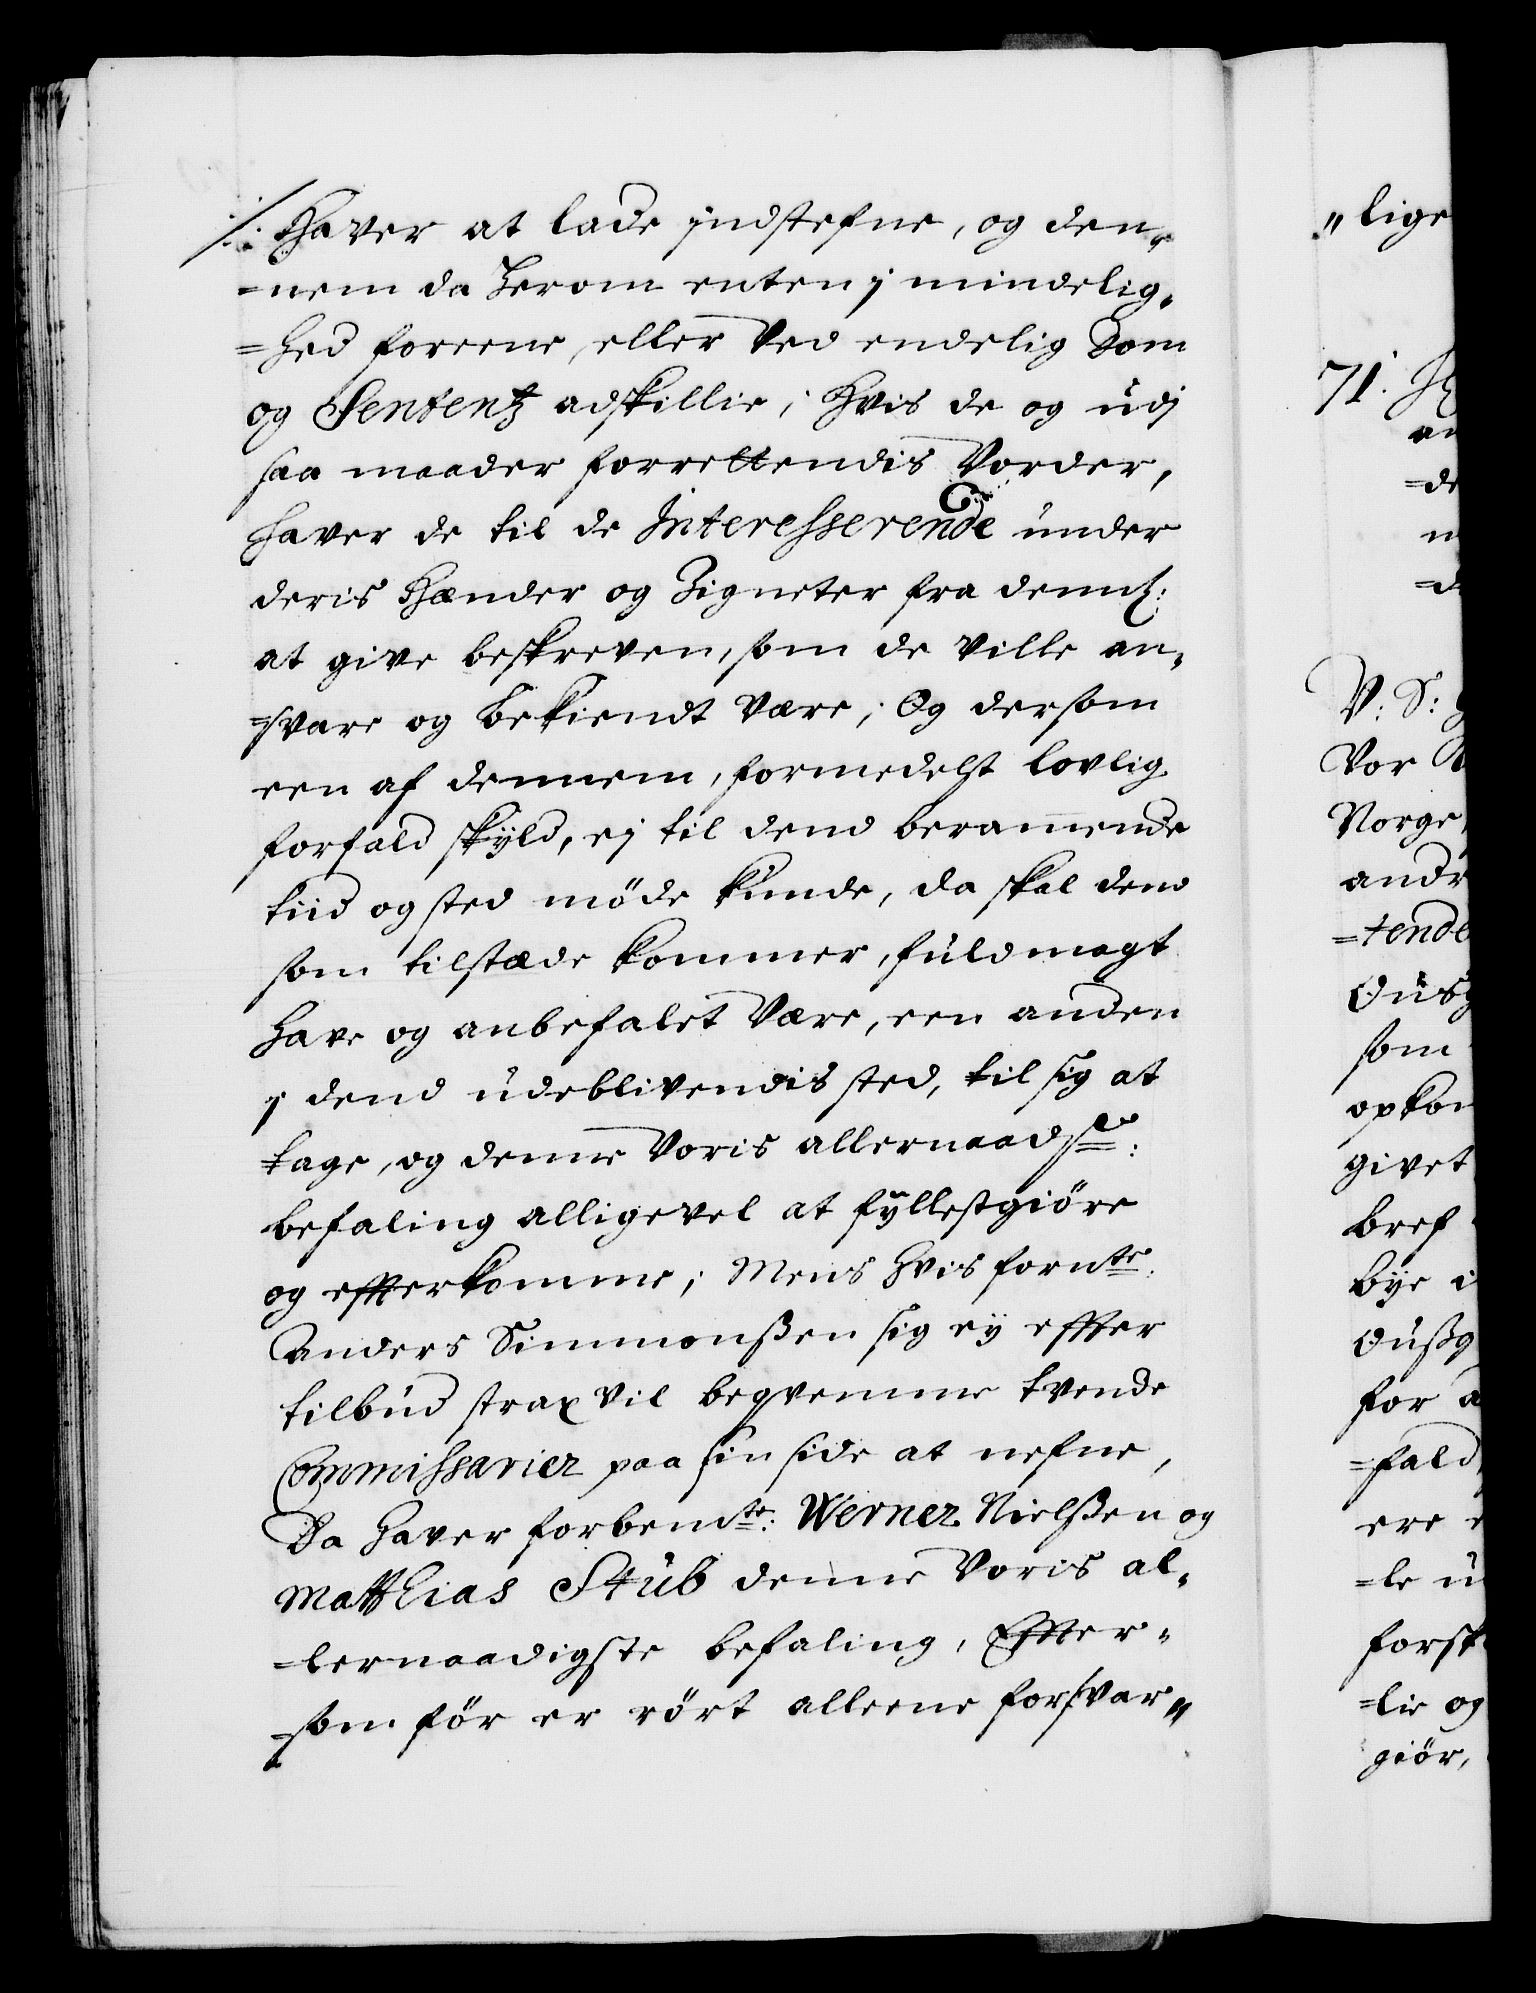 /: Hafver at lade indstefne, og den,
=nem da herom enten j mindelig,
=hed foreene, eller Ved endelig Dom
og Sententz adskillie; Hvis de og udj
saa maader forrettendis Vorder,
hafver de til de Interesserende under
deris Hænder og Zigneter fra dennem:
at give beskreven, som de ville an,
=svare og bekiendt være; Og dersom
een af dennem, formedelst lovlig
forfald skyld, ej til dend beramende
tiid og sted møde kunde, da skal dend
som tilstæde kommer, fuldmagt
have og anbefalet Være, een anden
j dend udeblivendis sted, til sig at
tage, og denne Voris allernaadste:
befaling alligevel at fyllestgiöre
og effterkomme; Mens hvis fornte:
Anders Simmonßen sig ey effter
tilbud strax vil beqvemme tvende
Commissarier paa sin side at nefne,
Da hafver forbemte: Werner Nielßen og
Matthias Stub denne Voris al,
=lernaadigste befaling, Effter=
=som för er rört alleene forsvar,,
,,lige
71.
=de
=d
V: S:
Vor
Norge
andr
=tende
som
opkom
givet
bref
bye i
for a
=fald
ere
=le u
forsk
=lie og
giör,